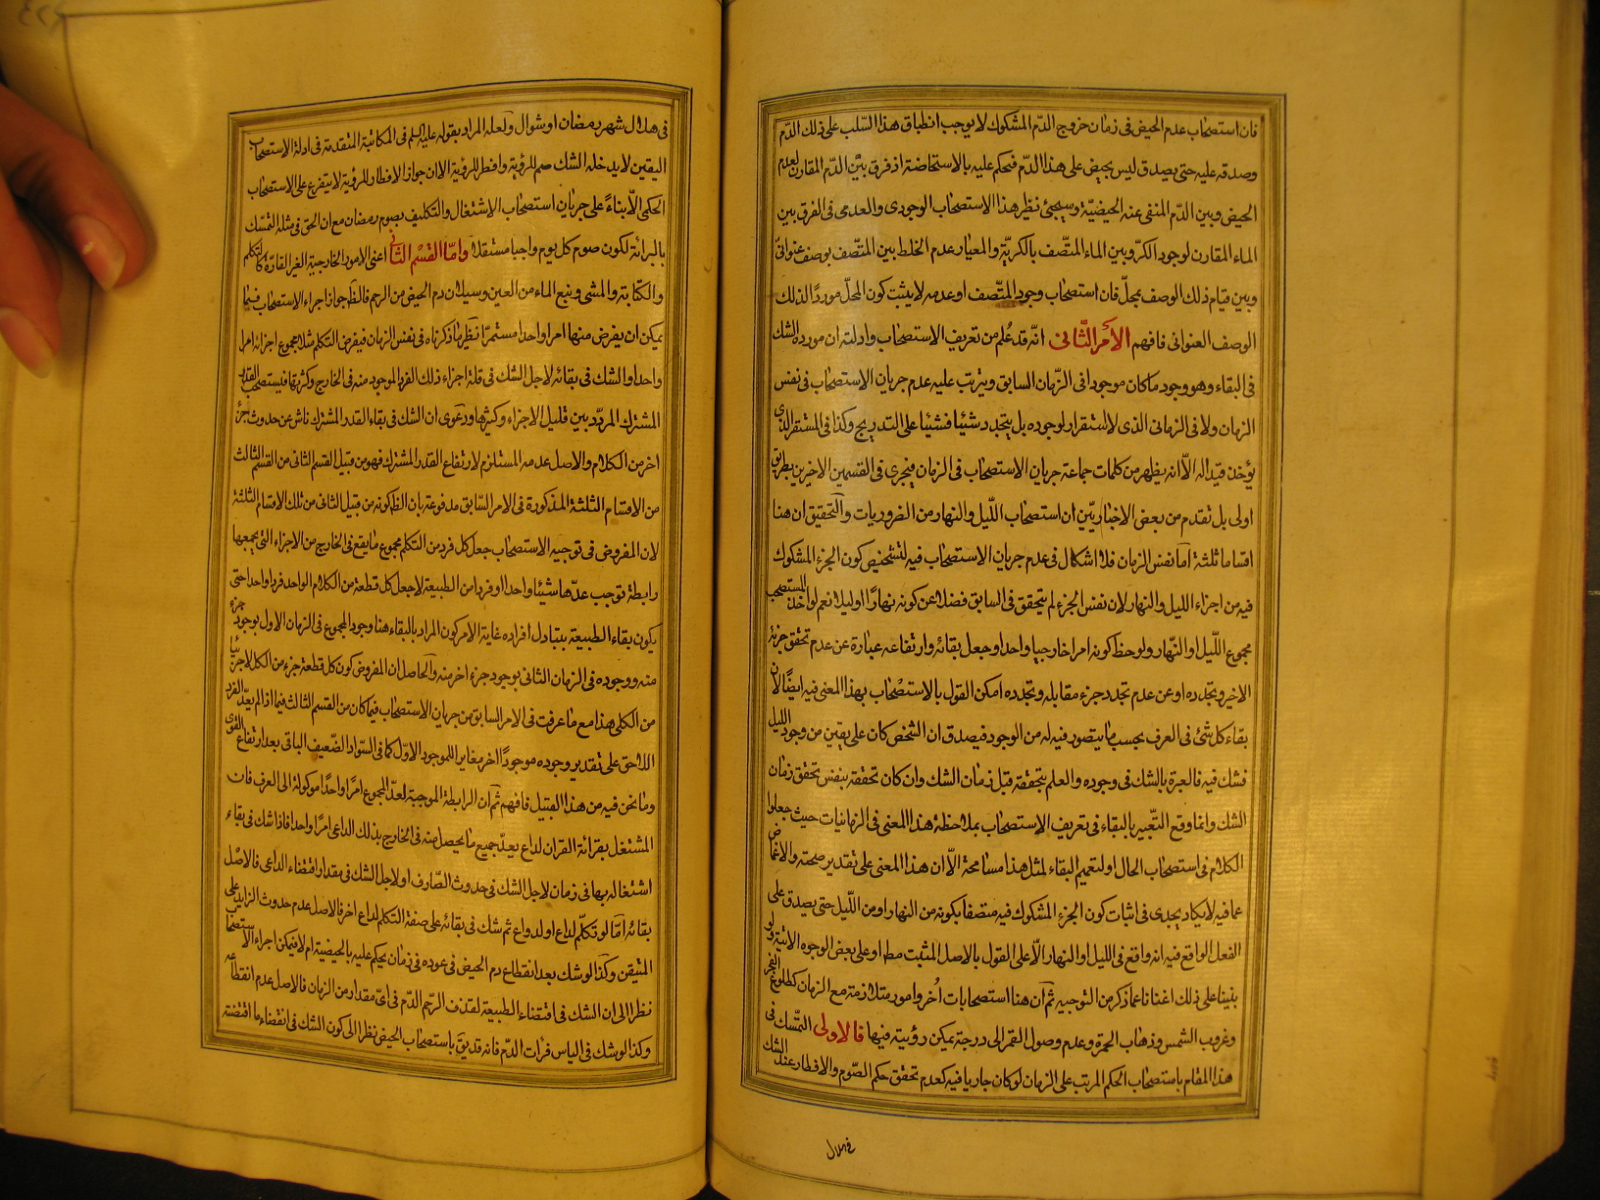 فان استصحاب عدم الحيض فى زمان خروج الدّم المشكوك لا يوجب انطباق هذا السّلب على ذلك الدّم
وصدقه عليه حتى يصدق ليس بحيض على هذا الدّم فيحكم عليه بالاستحاضة اذ فرق بيّن الدّم المقارن لعدم
الحيض وبين الدّم المنفى عنه الحيضيّة وسيجئ نظير هذا الاستصحاب الوجودى والعدمى فى الفرق بين
الماء المقارن لوجود الكرّ وبين الماء المتّصف بالكريّة والمعيار عدم الخلط بين المتّصف بوصف عنوانىّ
وبين قيام ذلك الوصف بمحلّ فان استصحاب وجود المتّصف او عدمه لا يثبت كون المحلّ موردًا لذلك
الوصف العنوانى فافهم الأمر الثّانى انّه قد علم من تعريف الاستصحاب وادلته ان مورده الشك
فى البقاء وهو وجود ما كان موجودا فى الزّمان السابق ويترتب عليه عدم جريان الاستصحاب فى نفس
الزمان ولا فى الزمانى الذى لا استقرار لوجوده بل يتجدد شيئا فشيئا على التدريج وكذا فى المستقر الذى
يؤخذ قيدا له الاّ انه يظهر من كلمات جماعة جريان الاستصحاب فى الزمان فيجرى فى القسمين الاخيرين بطريق
اولى بل تقدم من بعض الاخباريّين ان استصحاب اللّيل والنهار من الضروريات والتحقيق ان هنا
اقساما ثلثة امّا نفس الزمان فلا اشكال فى عدم جريان الاستصحاب فيه لتشخيص كون الجزء المشكوك
فيه من اجزاء الليل والنهار لان نفس الجزء لم يتحقق فى السابق فضلا عن كونه نهارًا او ليلا نعم لو اخذ المستصحب
مجموع اللّيل او النّهار ولوحظ كونه امرا خارجيا واحدا وجعل بقائه وارتفاعه عبارة عن عدم تحقق جزئه
الاخير وتجدده او عن عدم تجدد جزء مقابله وتجدده امكن القول بالاستصحاب بهذا المعنى فيه ايضًا لان
بقاء كل شئ فى العرف بحسب ما يتصور فيه له من الوجود فيصدق ان الشخص كان على يقين من وجود الليل
فشك فيه فالعبرة بالشك فى وجوده والعلم بتحققه قبل زمان الشك وان كان تحققه بنفس تحقق زمان
الشك وانما وقع التعبير بالبقاء فى تعريف الاستصحاب بملاحظة هذا المعنى فى الزمانيات حيث جعلوا
الكلام فى استصحاب الحال او لتعميم البقاء لمثل هذا مسامحة الاّ ان هذا المعنى على تقدير صحته والاغماض
عما فيه لا يكاد يجدى فى اثبات كون الجزء المشكوك فيه متصفا بكونه من النهار او من اللّيل حتى يصدق على
الفعل الواقع فيه انه واقع فى الليل او النهار الاّ على القول بالاصل المثبت مط او على بعض الوجوه الاتية ولو
بنينا على ذلك اغنانا عما ذكر من التوجيه ثم ان هنا استصحابات اُخر وامور متلازمة مع الزمان كطلوع الفجر
وغروب الشمس وذهاب الحمرة وعدم وصول القمر الى درجة يمكن رؤيته فيها فالاولى التّمسّك فى
هذا المقام باستصحاب الحكم المرتب على الزمان لو كان جاريا فيه كعدم تحقق حكم الصّوم والافطار عند الشك
فى هلال
فى هلال شهر رمضان او شوال ولعله المراد بقوله عليه السلم فى المكاتبة المتقدمة فى ادلة الاستصحاب
اليقين لا يدخله الشك صم للرؤية وافطر للرؤية الا ان جواز الافطار للرؤية لا يتفرع على الاستصحاب
الحكمى الاّ بناءً على جريان استصحاب الاشتغال والتكليف بصوم رمضان مع ان الحق فى مثله التمسّك
بالبرائة لكون صوم كل يوم واجبا مستقلا وامّا القسم الثانى اعنى الامور الخارجية الغير القارّة كالتكلم
والكتابة والمشى ونبع الماء من العين وسيلان دم الحيض من الرحم فالظ جواز اجراء الاستصحاب فيما
يمكن ان يفرض منها امرا واحدا مستمرّا نظير ما ذكرناه فى نفس الزمان فيفرض التكلم مثلا مجموع اجزائه امرا
واحدا والشك فى بقائه لاجل الشك فى قلة اجزاء ذلك الفرد الموجود منه فى الخارج وكثرتها فيستصحب القدر
المشترك المردّد بين قليل الاجزاء وكثيرها ودعوى ان الشك فى بقاء القدر المشترك ناش عن حدوث جزء
اخر من الكلام والاصل عدمه المستلزم لارتفاع القدر المشترك فهو من قبيل القسم الثانى من القسم الثالث
من الاقسام الثلثة المذكورة فى الامر السّابق مدفوعة بان الظ كونه من قبيل الثانى من تلك الاقسام الثلثة
لان المفروض فى توجيه الاستصحاب جعل كل فرد من التكلم مجموع ما يقع فى الخارج من الاجزاء التى يجمعها
رابطة توجب عدّها شيئا واحدا او فردا من الطبيعة لا جعل كل قطعة من الكلام الواحد فردا واحدا حتى
يكون بقاء الطبيعة بتبادل افراده غاية الامر كون المراد بالبقاء هنا وجود المجموع فى الزمان الاول بوجود جزء
منه ووجوده فى الزمان الثانى بوجود جزء اخر منه والحاصل ان المفروض كون كل قطعة جزء من الكل لا جزئيا
من الكلى هذا مع ما عرفت فى الامر السابق من جريان الاستصحاب فيما كان من القسم الثالث فيما اذا لم يعدّ الفرد
اللاحق على تقدير وجوده موجودًا اخر مغايرا للموجود الاوّل كما فى السّواد الضّعيف الباقى بعد ارتفاع القوى
وما نحن فيه من هذا القبيل فافهم ثم ان الرابطة الموجبة لعدّ المجموع امرًا واحدًا موكولة الى العرف فان
المشتغل بقرائة القران لداع يعدّ جميع ما يحصل منه فى الخارج بذلك الداعى امرًا واحدا فاذا شك فى بقاء
اشتغاله بها فى زمان لاجل الشك فى حدوث الصّارف او لاجل الشك فى مقدار اقتضاء الداعى فالاصل
بقائه امّا لو تكلّم لداع او لدواع ثم شك فى بقائه على صفة التكلم لداع اخر فالاصل عدم حدوث الزايد على
المتيقن وكذا لو شك بعد انقطاع دم الحيض فى عوده فى زمان يحكم عليه بالحيضية ام لا فيمكن اجراء الاستصحاب
نظرا الى ان الشك فى اقتضاء الطبيعة لقذف الرّحم الدّم فى اىّ مقدار من الزمان فالاصل عدم انقطاعه
وكذا لو شك فى الياس فرأت الدّم فانه قد يقّ باستصحاب الحيض نظرا الى كون الشك فى انقضاء ما اقتضته